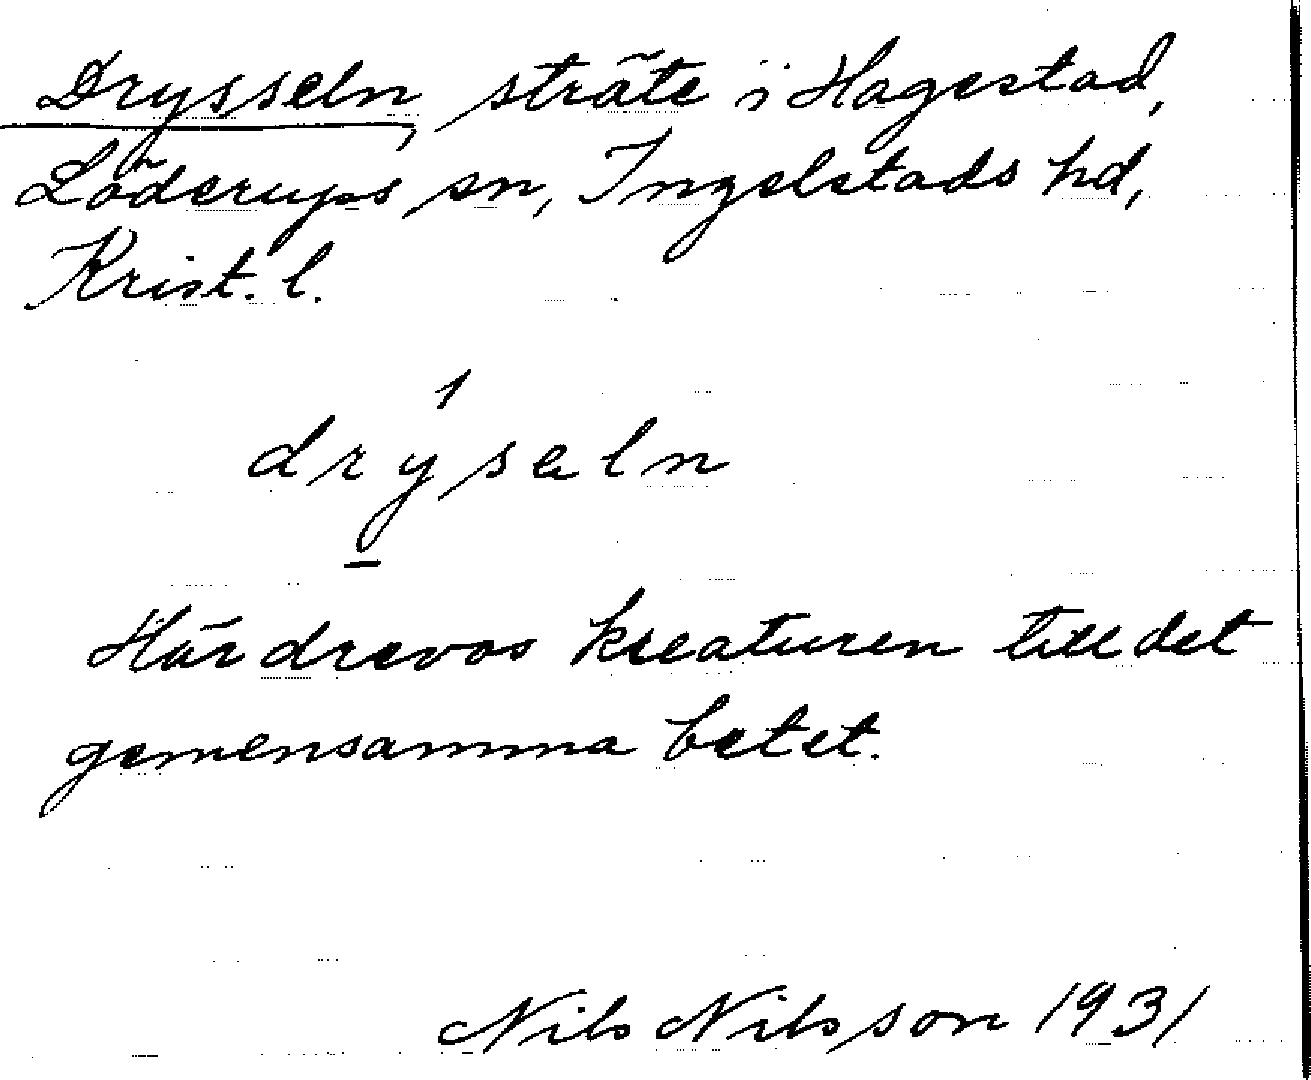 Drysseln, sträte i Hagestad,
Löderups sn, Ingelstads hd,
Krist. l.
drýsəln
Här drevos kreaturen till det
gemensamma betet.
Nils Nilsson 1931